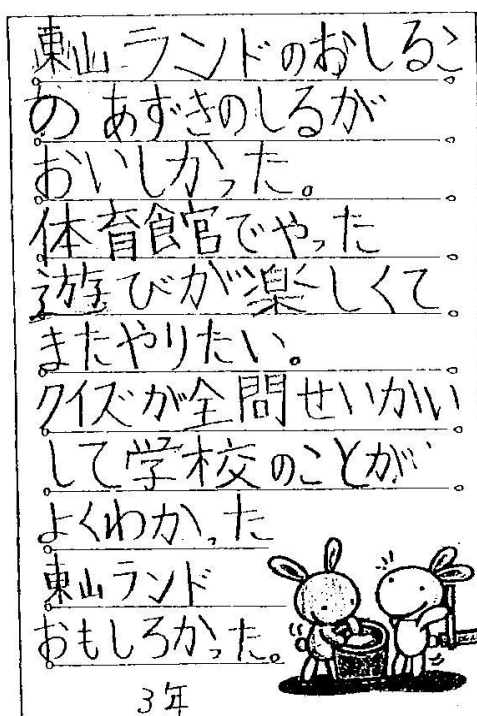 東山ランドのおしるこ
の あずきのしるが
おいしかった。
体育館でやった
遊びが楽しくて
またやりたい。
クイズが全問せいかい
して学校のことが
よくわかった
東山ランド
おもしろかった。
3年